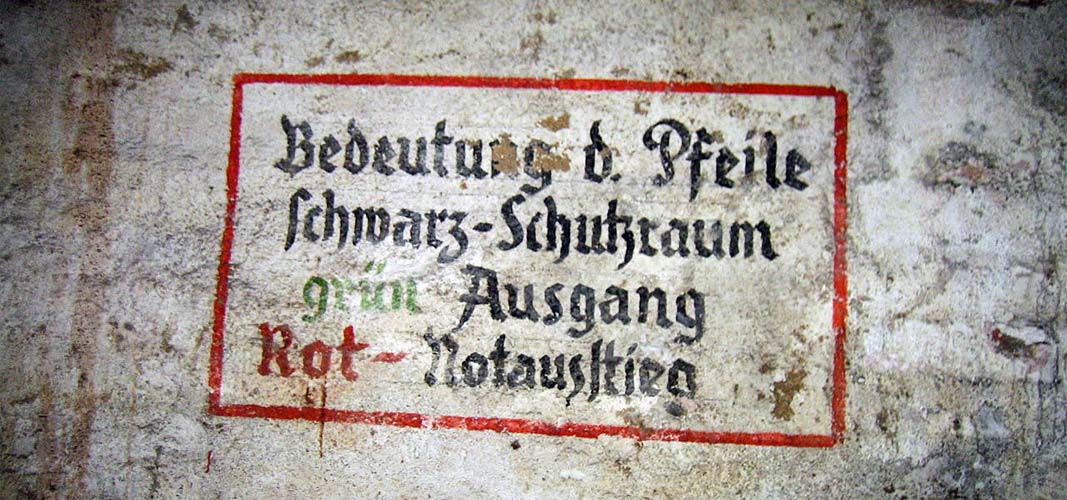 Bedeutung d. Pfeile
schwarz-Schutzraum
grün Ausgang
Rot- Notausstieg